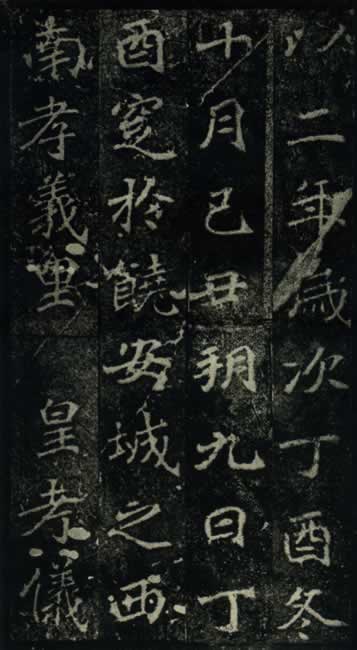 以二年歲次丁酉冬
十月己丑朔九日丁
酉窆於饒安城之西
南孝義里 皇考儀